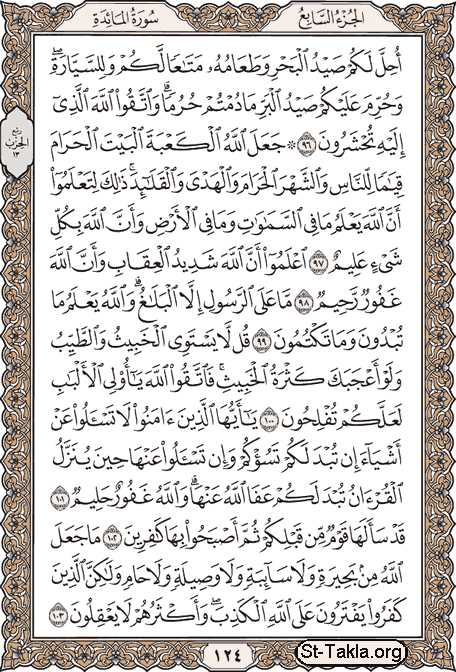 الجزء السابع
سورة المائدة
ربع
الحزب
١٣
أُحِلَّ لَكُمْ صَيْدُ ٱلْبَحْرِ وَطَعَامُهُۥ مَتَٰعًا لَّكُمْ وَلِلسَّيَّارَةِ ۖ
وَحُرِّمَ عَلَيْكُمْ صَيْدُ ٱلْبَرِّ مَا دُمْتُمْ حُرُمًا ۗ وَٱتَّقُوا۟ ٱللَّهَ ٱلَّذِىٓ
إِلَيْهِ تُحْشَرُونَ ٩٦ ۞ جَعَلَ ٱللَّهُ ٱلْكَعْبَةَ ٱلْبَيْتَ ٱلْحَرَامَ
قِيَٰمًا لِّلنَّاسِ وَٱلشَّهْرَ ٱلْحَرَامَ وَٱلْهَدْىَ وَٱلْقَلَٰٓئِدَ ۚ ذَٰلِكَ لِتَعْلَمُوٓا۟
أَنَّ ٱللَّهَ يَعْلَمُ مَا فِى ٱلسَّمَٰوَٰتِ وَمَا فِى ٱلْأَرْضِ وَأَنَّ ٱللَّهَ بِكُلِّ
شَىْءٍ عَلِيمٌ ٩٧ ٱعْلَمُوٓا۟ أَنَّ ٱللَّهَ شَدِيدُ ٱلْعِقَابِ وَأَنَّ ٱللَّهَ
غَفُورٌ رَّحِيمٌ ٩٨ مَّا عَلَى ٱلرَّسُولِ إِلَّا ٱلْبَلَٰغُ ۗ وَٱللَّهُ يَعْلَمُ مَا
تُبْدُونَ وَمَا تَكْتُمُونَ ٩٩ قُل لَّا يَسْتَوِى ٱلْخَبِيثُ وَٱلطَّيِّبُ
وَلَوْ أَعْجَبَكَ كَثْرَةُ ٱلْخَبِيثِ ۚ فَٱتَّقُوا۟ ٱللَّهَ يَٰٓأُو۟لِى ٱلْأَلْبَٰبِ
لَعَلَّكُمْ تُفْلِحُونَ ١٠٠ يَٰٓأَيُّهَا ٱلَّذِينَ ءَامَنُوا۟ لَا تَسْـَٔلُوا۟ عَنْ
أَشْيَآءَ إِن تُبْدَ لَكُمْ تَسُؤْكُمْ وَإِن تَسْـَٔلُوا۟ عَنْهَا حِينَ يُنَزَّلُ
ٱلْقُرْءَانُ تُبْدَ لَكُمْ عَفَا ٱللَّهُ عَنْهَا ۗ وَٱللَّهُ غَفُورٌ حَلِيمٌ ١٠١
قَدْ سَأَلَهَا قَوْمٌ مِّن قَبْلِكُمْ ثُمَّ أَصْبَحُوا۟ بِهَا كَٰفِرِينَ ١٠٢ مَا جَعَلَ
ٱللَّهُ مِنۢ بَحِيرَةٍ وَلَا سَآئِبَةٍ وَلَا وَصِيلَةٍ وَلَا حَامٍ ۙ وَلَٰكِنَّ ٱلَّذِينَ
كَفَرُوا۟ يَفْتَرُونَ عَلَى ٱللَّهِ ٱلْكَذِبَ ۖ وَأَكْثَرُهُمْ لَا يَعْقِلُونَ ١٠٣
١٢٤
St-Takla.org